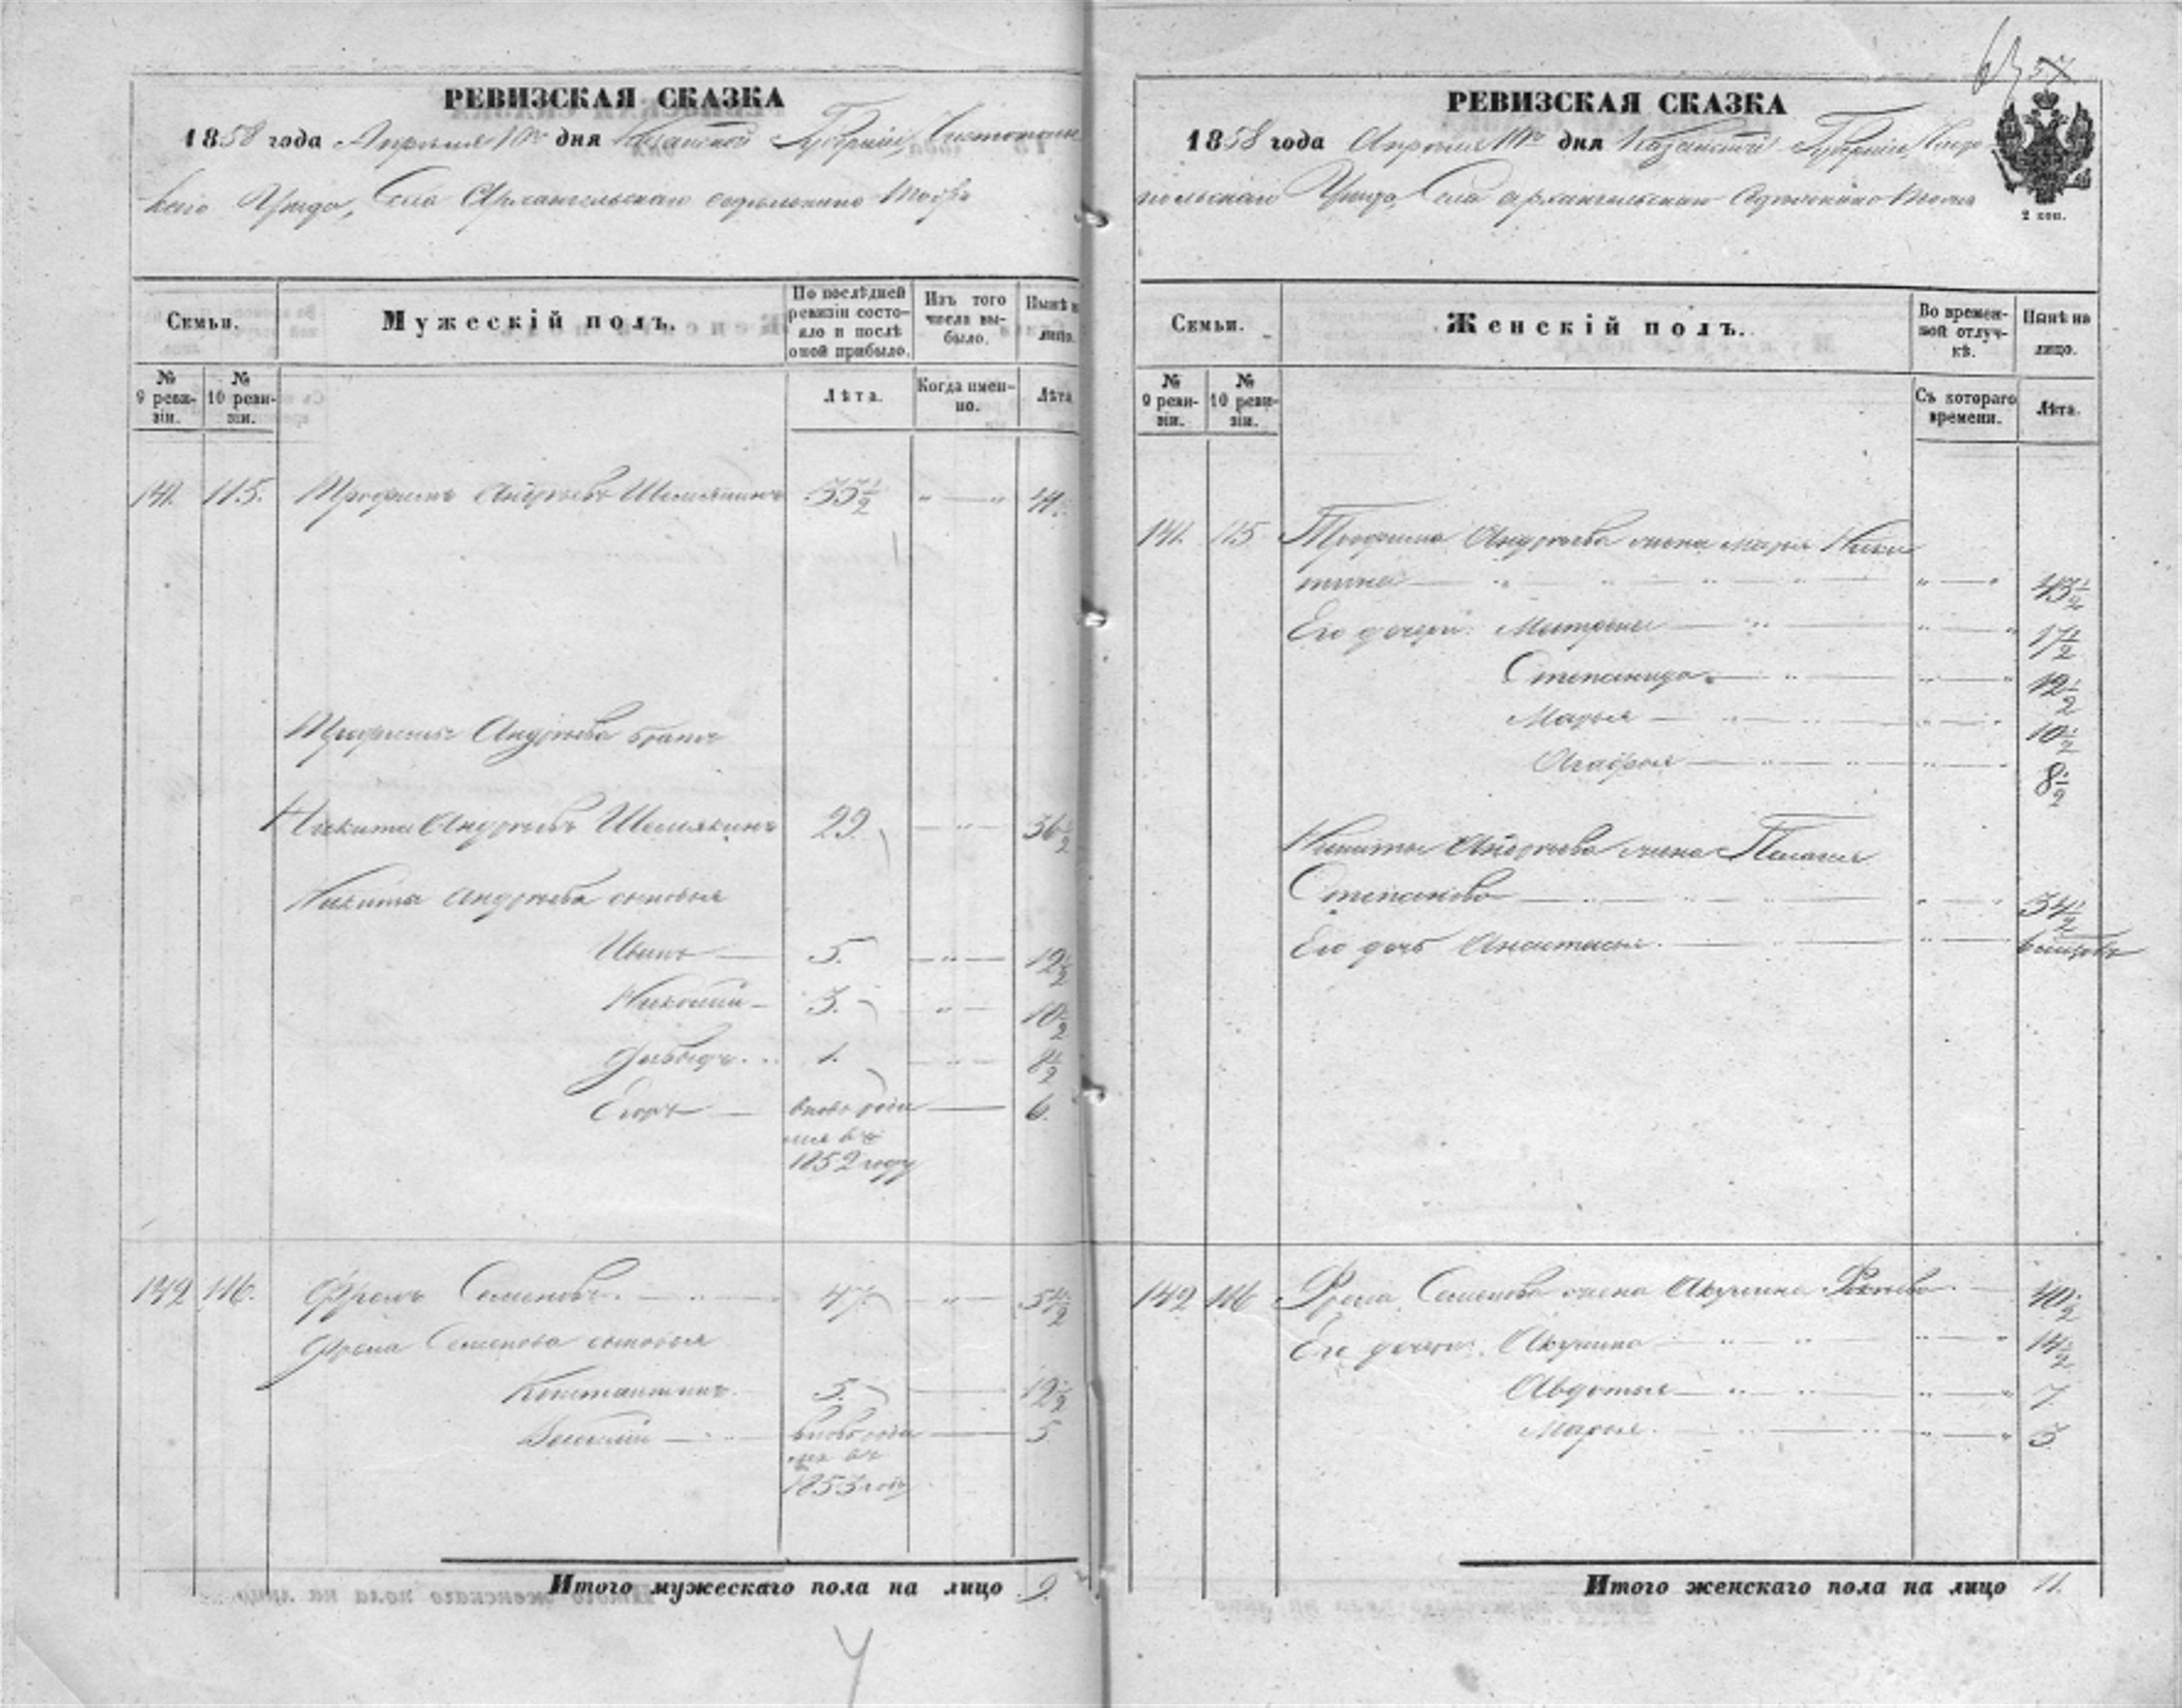 РЕВИЗСКАЯ СКАЗКА
1858 года Апреля 10го дня Казанской Губернии, Чистополь
скаго Уезда, Села Архангельскаго
Семьи.
Мужескій полъ.
По послѣдней ревизіи состояло и послѣ оной прибыло.
Изъ того числа выбыло.
Нынѣ на лицо.
№ 9 ревизіи.
№ 10 ревизіи.
Лѣта.
Когда именно.
Лѣта
141. 115. Трофимъ Андреевъ Шемякинъ 33½ " — " 41.
Трофима Андреева братъ
Никита Андреевъ Шемякинъ 29. — " — 36½
Никиты Андреева сыновья
Иванъ — 5. — " — 12½
Николай — 3. " — 10½
Давыдъ 1. — " — 8½
Егоръ — вновь роди — 6.
лся въ
1852 году
142 116. Фролъ Семеновъ. 47. — " — 54½
Фрола Семенова сыновья
Константинъ. 5. — 12½
Василій — вновь роди — 5
лся въ
1853 году
Итого мужескаго пола на лицо 9.
57
РЕВИЗСКАЯ СКАЗКА
1858 года Апреля 10го дня Казанской Губернии, Чисто
польскаго Уезда, Села Архангельскаго
2 коп.
Семьи.
Женскій полъ.
Во временной отлучкѣ.
Нынѣ на лицо.
№ 9 ревизіи.
№ 10 ревизіи.
Съ котораго времени.
Лѣта.
141. 115 Трофима Андреева жена Марья Ники
тина — " — " 43½
Его дочери: Матрена — " — " 17½
Степанида — " — " 12½
Марья — " — " 10½
Агафья — " — " 8½
Никиты Андреева жена Пелагея
Степанова — " — " 34½
Его дочь Анастасья. — " — "
142 116 Фрола Семенова жена Акулина — 40½
Его дочери: Акулина — " — " 14½
Авдотья — " — " 7
Марья. — " — " 3
Итого женскаго пола на лицо 11.